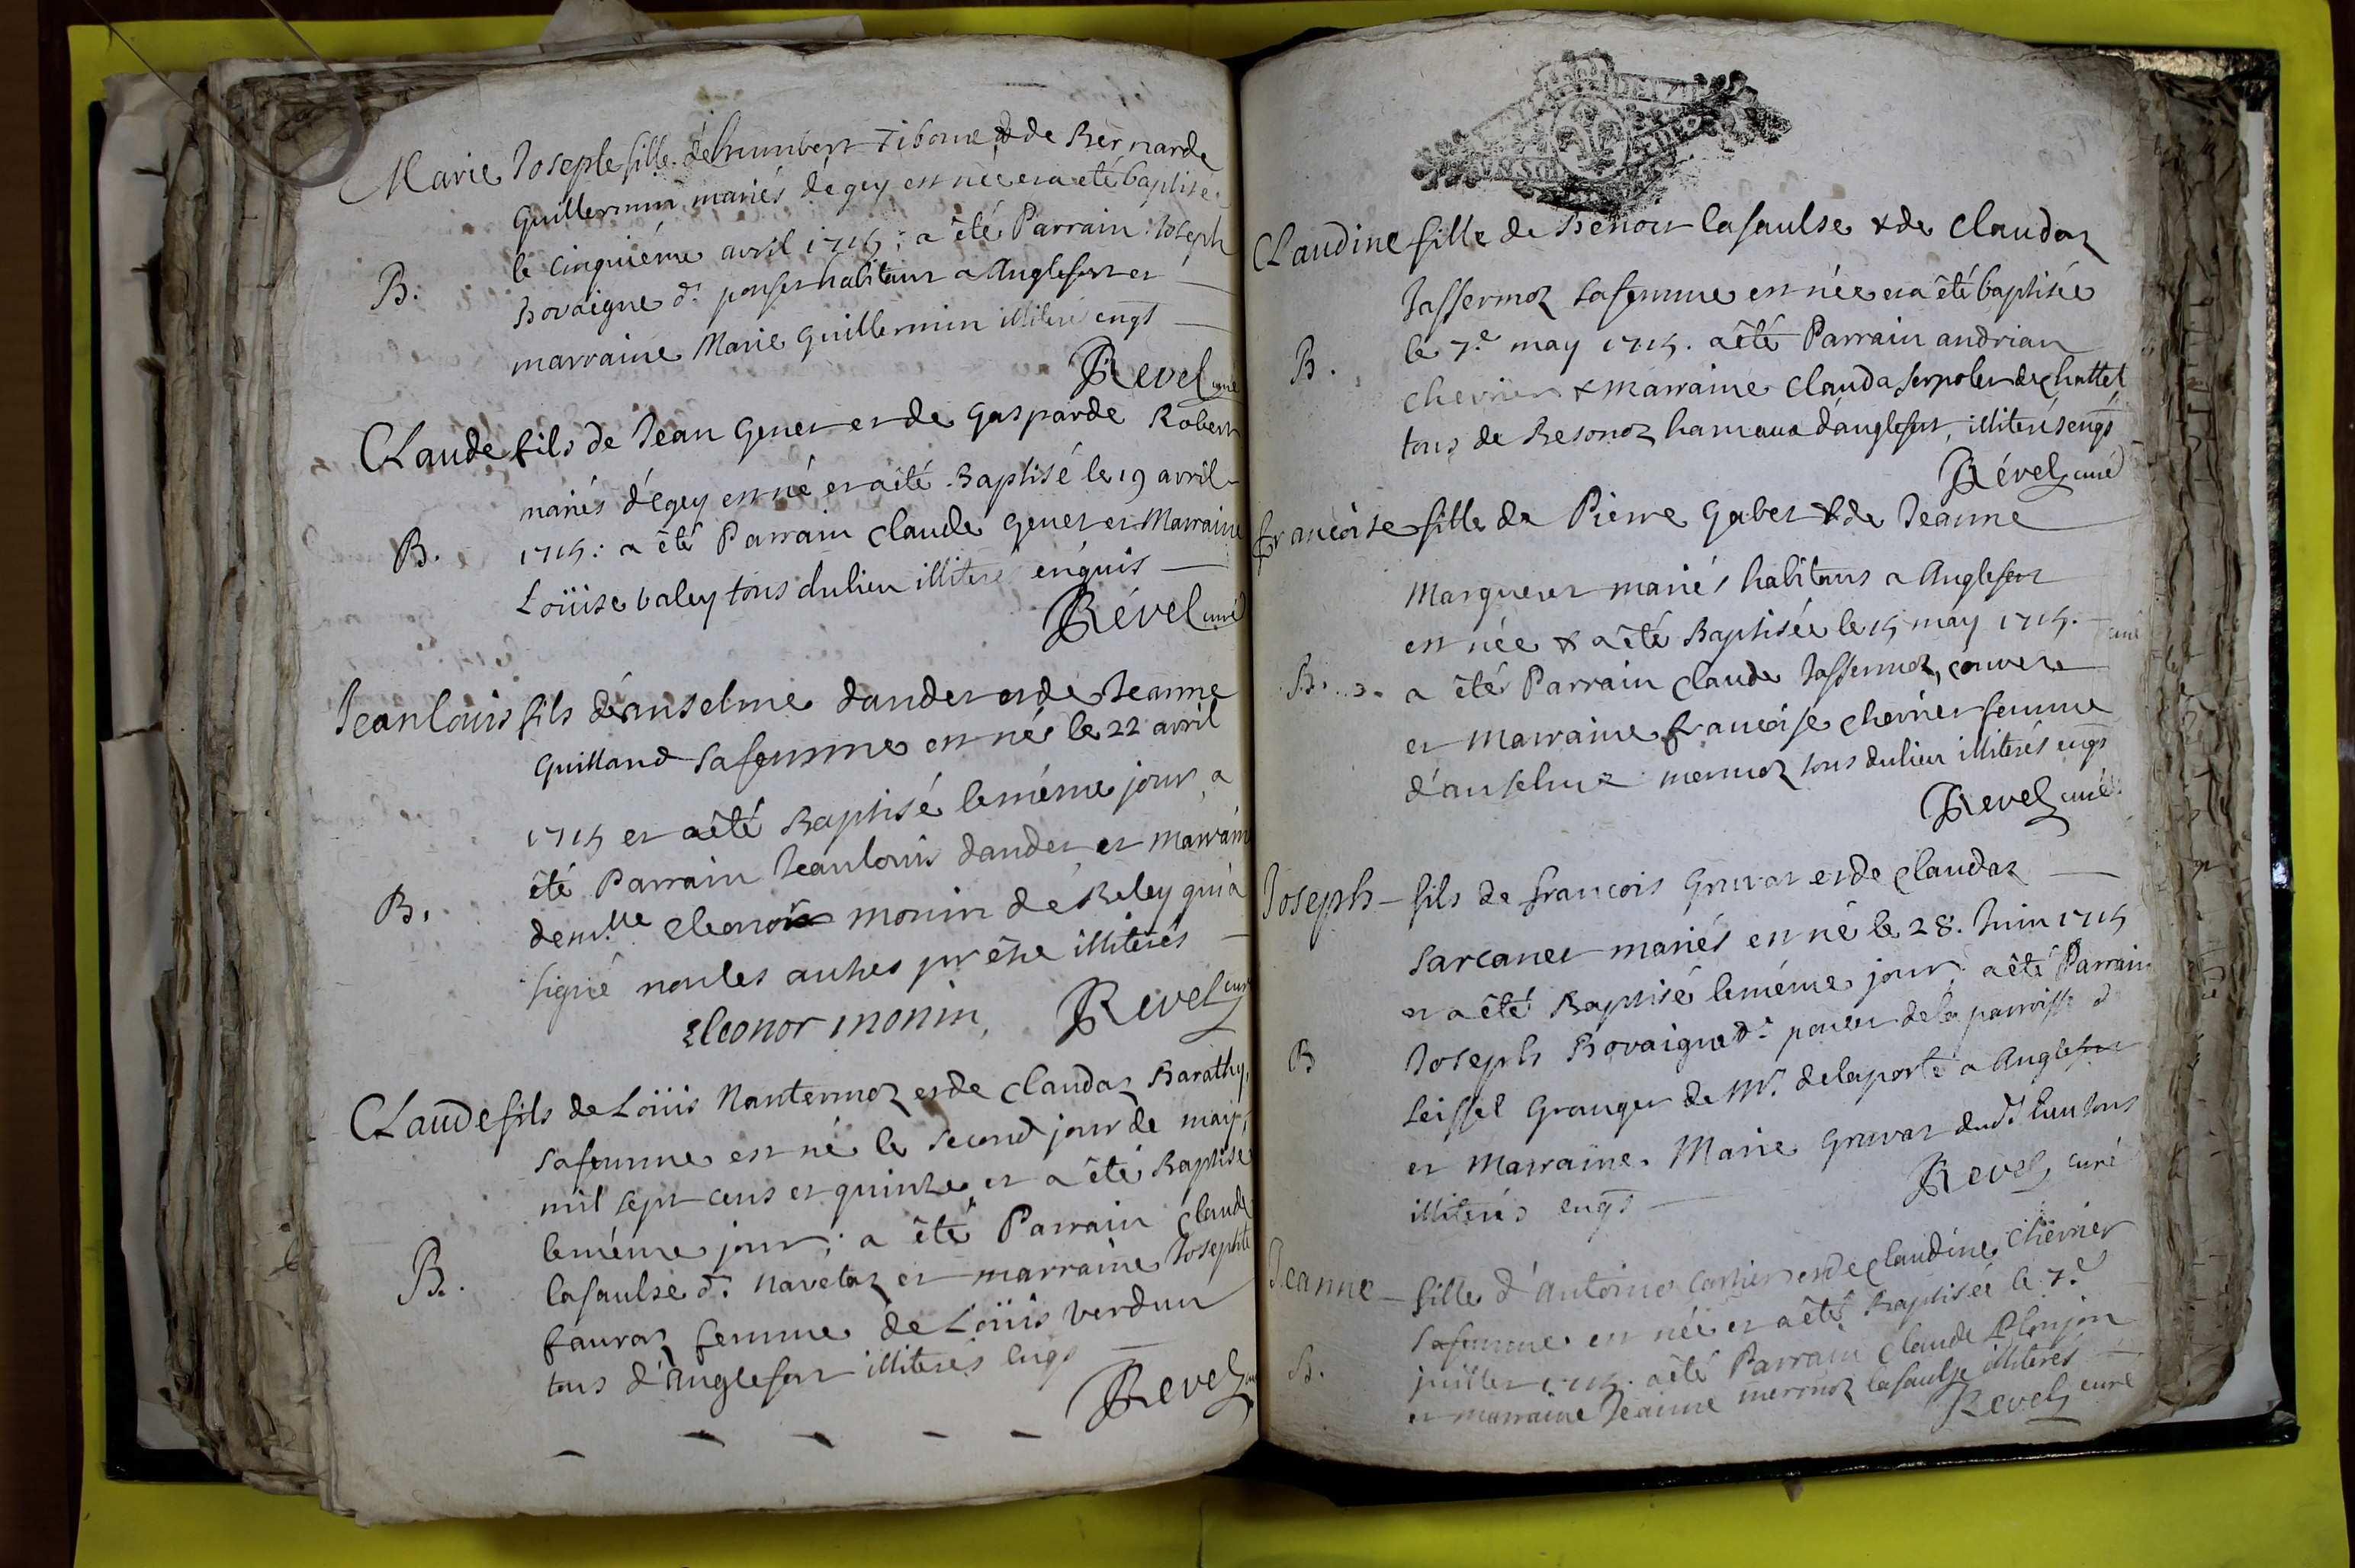 Marie Joseple fille de humbert Tibome & de Bernarde
Guillermin mariés dégey est née et a eté baptise
le cinquiéme avril 1715; a êté Parrain Joseph
B.
Bovaigne dt. ponset habitant a Anglefort et
marraine Marie Guillermin illiterés engs
Revel curé
Claude fils de Jean Genet et de Gasparde Robert
mariés d'égey est né et a êté Baptisé le 19 avril
B.
1715: a êté Parrain Claude Genet et Marraine
Loüise baley tous du lieu illiterés enquis
Révelcuré
Jean louis fils d'anselme dandet et de Jeanne
Guilland sa femme est né le 22 avril
1715 et a êté Baptisé le méme jour, a
B.
été Parrain Jean louis dandet et marrain
demlle Eleonor monin de Reley qui a
signé non les autres pr être illiterés
Eleonor monin, Revel curé
Claude fils de Loüis Nantermoz et de Claudaz Barathy,
sa femme est né le second jour de may,
mil sept cens et quinze et a êté Baptisé
B.
le méme jour; a êté Parrain Claude
lasaulse dt. Navetaz et marraine Josephte
favraz femme de Loüis Verdun
tous d'Anglefort illiterés engs
Revel
Claudine fille de Benoit lasaulse & de Claudaz
Jassermoz sa femme est née et a êté baptisée
B.
le 7.e may 1715. a êté Parrain andrian
chevrier & Marraine Clauda serpolet de Chattel
tous de Resonoz hameau d'anglefort, illiterés engs
Révelcuré
françoise fille de Pierre Gabet & de Jeanne
Marqueret mariés habitans a Anglefort
est née & a êté Baptisée le 15 may 1715.
B.
a êté Parrain Claude Jassermoz, couvere
et Marraine françoise chevrier femme
d'anselme mermoz tous du lieu illiterés engs
Revel curé
Joseph fils de françois Gravaz et de Claudaz
Sarcanet mariés est né le 28. Juin 1715
et a êté Baptisé le méme jour: a êté Parrain
B
Joseph Bovaigne dt. poncet de la parroisse d
Seissel Granger de Mr. delaporte a Anglefort
et Marraine Marie Gravaz dudt. lieu tous
illiterés engs Revel curé
Jeanne fille d'Antoine Carrier et de Claudine Chevrier
sa femme est née et a êté Baptisée le 7.e
B.
juillet 1715. a êté Parrain Claude Plonjon
et marraine Jeanne mermoz lasaulse illiterés
Revel curé